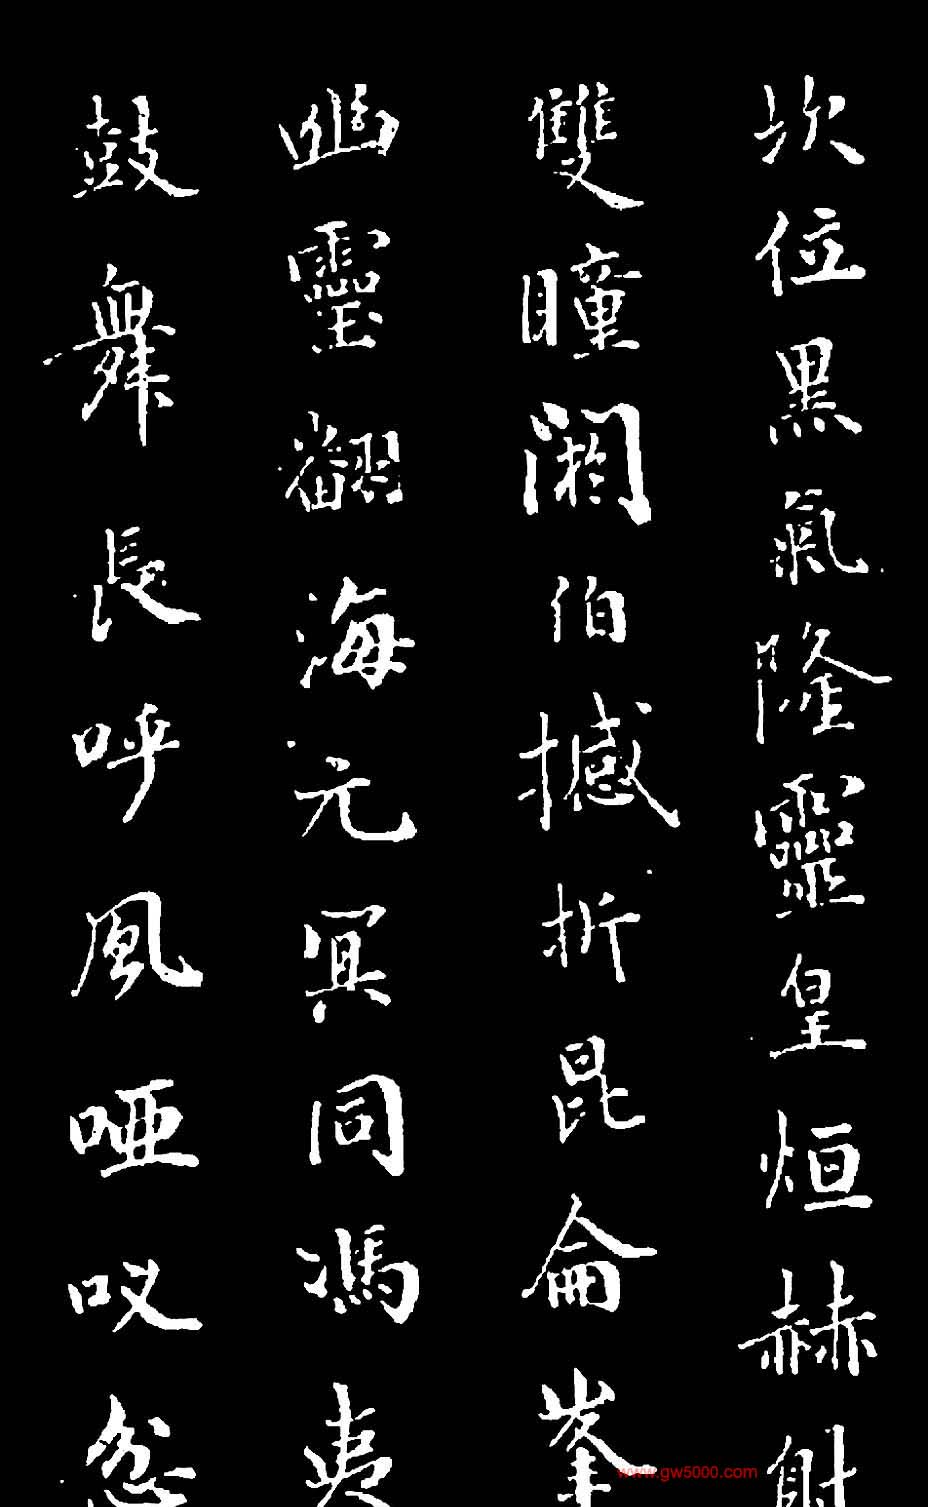 坎位黑氣隆靈皇烜赫射
雙瞳闞伯撼折昆侖峯
幽靈翻海元冥同馮夷
鼓舞長呼風啞哎忽
www.gw5000.com